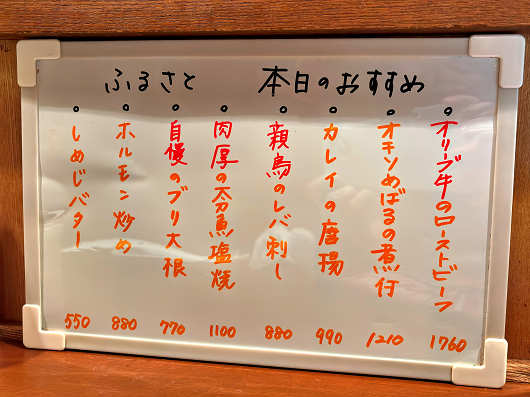 ふるさと 本日のおすすめ
オリーブ牛のローストビーフ 1760
オキソめばるの煮付 1210
カレイの唐揚 990
親鳥のレバ刺し 880
肉厚の太刀魚塩焼 1100
自慢のブリ大根 770
ホルモン炒め 880
しめじバター 550